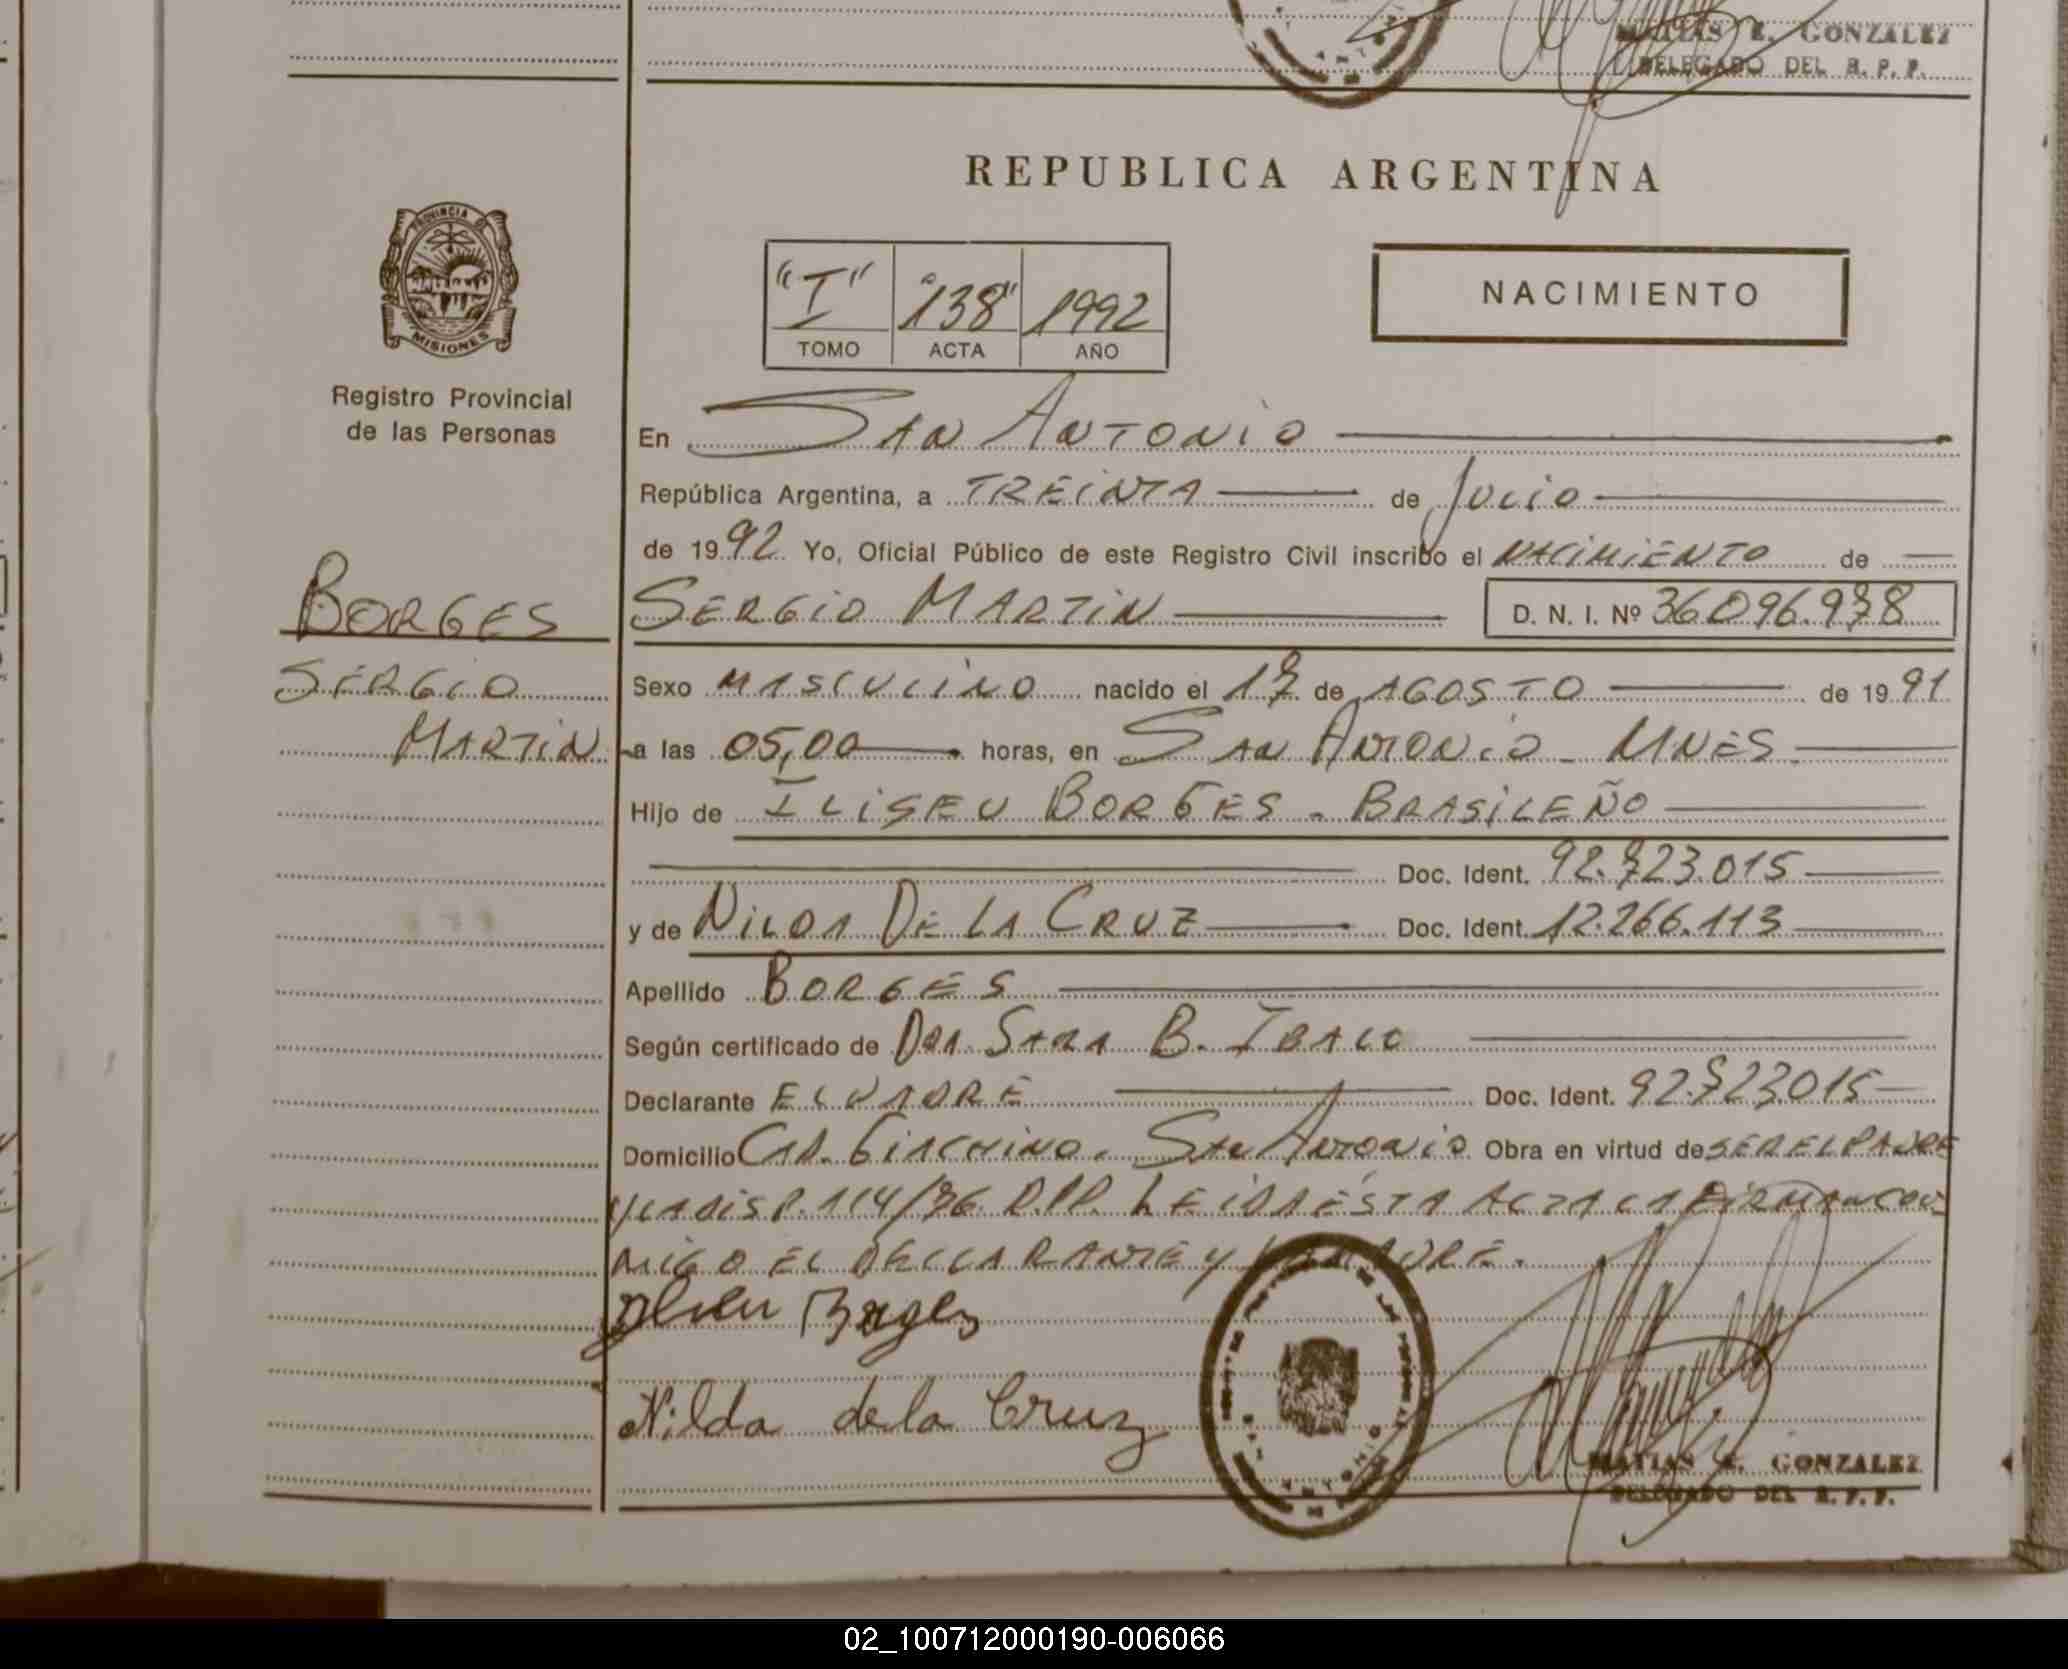 MATIAS E. GONZALEZ
DELEGADO DEL R. P. P.
REPUBLICA ARGENTINA
PROVINCIA DE
MISIONES
Registro Provincial
de las Personas
"I" "138" 1992
TOMO ACTA AÑO
NACIMIENTO
En SAN ANTONIO
República Argentina, a TREINTA de JULIO
de 1992 Yo, Oficial Público de este Registro Civil inscribo el NACIMIENTO de
BORGES
SERGIO
MARTIN
SERGIO MARTIN D. N. I. Nº 36.096.978
Sexo MASCULINO nacido el 17 de AGOSTO de 1991
a las 05,00 horas, en SAN ANTONIO - MNES
Hijo de ILISEU BORGES - BRASILEÑO
Doc. Ident. 92.723.015
y de NILDA DE LA CRUZ Doc. Ident. 12.266.113
Apellido BORGES
Según certificado de DRA. SARA B.
Declarante EL PADRE Doc. Ident. 92.723.015
Domicilio GIACHINO. SAN ANTONIO Obra en virtud de SER EL PADRE
Y LA DISP. 114/76. R.P.P. LEIDA ESTA ACTA LA FIRMAN CON
MIGO EL DECLARANTE Y LA MADRE.
Borges
Nilda de la Cruz
MATIAS E. GONZALEZ
DELEGADO DEL R. P. P.
02_100712000190-006066